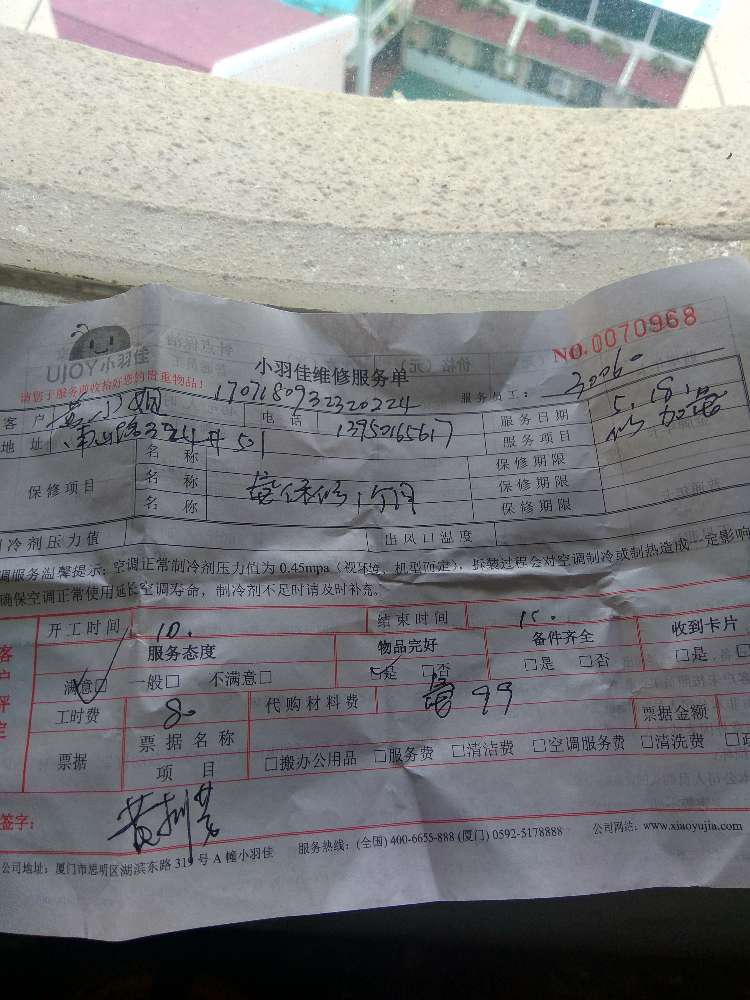 NO.0070968
UJOY小羽佳
小羽佳维修服务单
请您于服务前收拾好您的贵重物品！
1707180932320224
服务员工：
30060
客户 黄小姐
电话 13950165617
服务日期 5.18号
地址
服务项目
保修项目
名称
保修期限
名称
保修保修1个月
保修期限
名称
保修期限
冷剂压力值
出风口温度
调服务温馨提示：空调正常制冷剂压力值为 0.45mpa（视环境、机型而定），拆装过程会对空调制冷或制热造成一定影响
确保空调正常使用延长空调寿命，制冷剂不足时请及时补充。
客户评定
开工时间 10.
结束时间 15.
服务态度
物品完好
备件齐全
收到卡片
满意□ 一般□ 不满意□
是 □否
□是 □否
□是
工时费 80
代购材料费
99
票据金额
票据
票据名称
项目
□搬办公用品 □服务费 □清洁费 □空调服务费 □清洗费
签字：
公司地址：厦门市思明区湖滨东路 319 号 A 幢小羽佳 服务热线：(全国) 400-6655-888 (厦门) 0592-5178888 公司网站：www.xiaoyujia.com